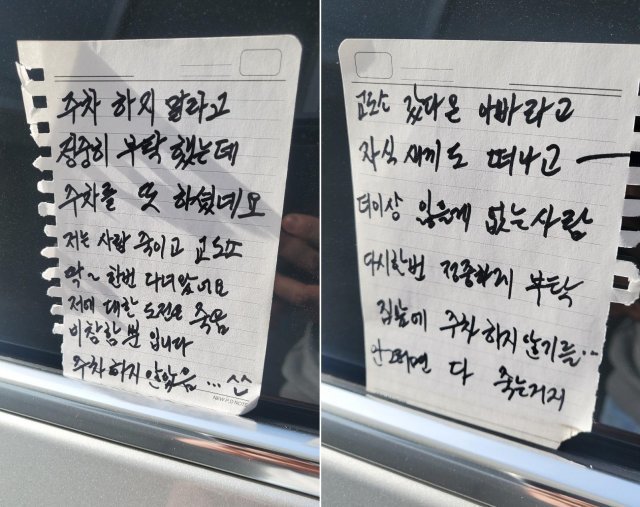 주차 하지 말라고
정중히 부탁 했는데
주차를 또 하셨네요
저는 사람 죽이고 교도소
딱~ 한번 다녀왔어요
저에 대한 도전은 죽음
비참함 뿐 입니다
주차 하지 않았음... ^^
NEW P.D NOTE
교도소 갔다온 아빠라고
자식 새끼도 떠나고
더이상 잃을게 없는 사람
다시한번 정중하게 부탁
집앞에 주차 하지 않기를...
안그러면 다 죽는거지